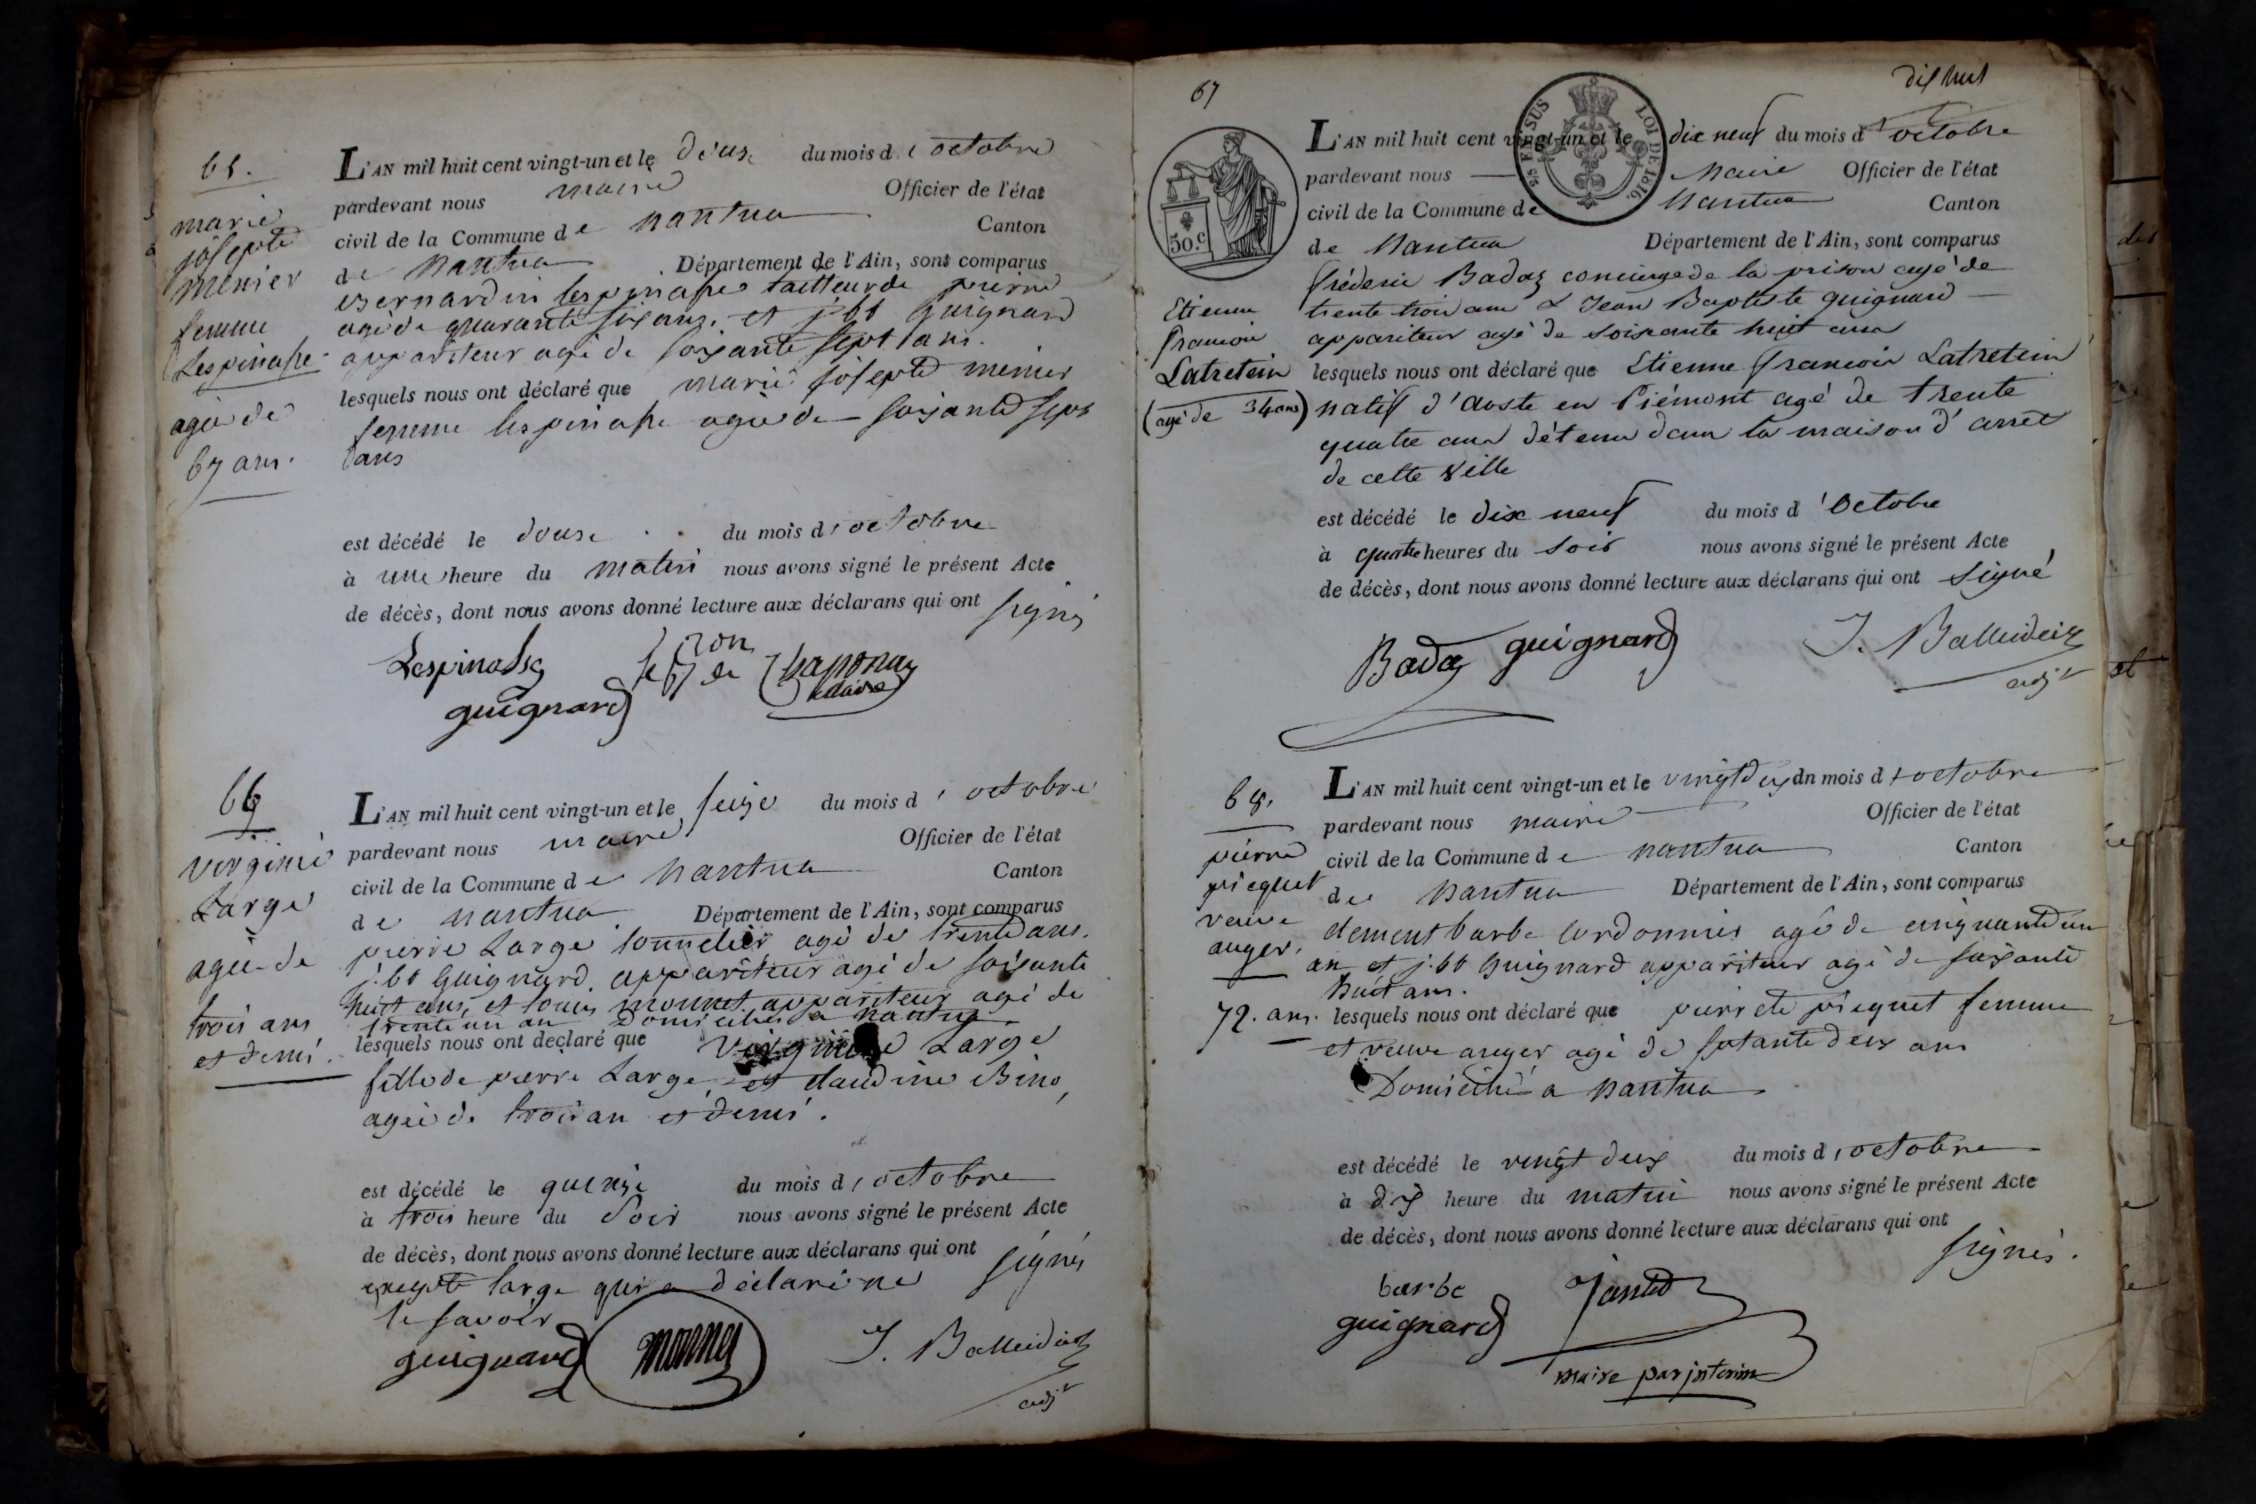 65.
marie
josepte
menier
femme
Lespinasse
agée de
67 ans.
L'AN mil huit cent vingt-un et le douse du mois d'octobre
pardevant nous maire Officier de l'état
civil de la Commune de nantua Canton
de nantua Département de l'Ain, sont comparus
Bernardin lespinasse tailleur de pierre
agé de quarante six ans, et j. bt Guignard
appariteur agé de soixante sept ans.
lesquels nous ont déclaré que marie josepte menier
femme lespinasse agée de soixante sept
ans
est décédé le douse du mois d'octobre
à une heure du matin nous avons signé le présent Acte
de décès, dont nous avons donné lecture aux déclarans qui ont signés
Lespinasse
guignard
maire
66
virginie
Large
agée de
trois ans
et demi.
L'AN mil huit cent vingt-un et le seize du mois d'octobre
pardevant nous maire Officier de l'état
civil de la Commune de nantua Canton
de nantua Département de l'Ain, sont comparus
pierre Large tonnelier agé de trente ans.
j. bt Guignard. appariteur agé de soixante
huit ans, et louis monnet appariteur agé de
trente un an Domiciliés a nantua
lesquels nous ont déclaré que virginie Large
fille de pierre Large et claudine Bino,
agée de trois an et demi.
est décédé le quinze du mois d'octobre
à trois heure du soir nous avons signé le présent Acte
de décès, dont nous avons donné lecture aux déclarans qui ont signés
excepté large qui a déclaré ne
le savoir
guignard
J. Balleidier
adjt
67
dix huit
50.c
LOI DE 1816
Etienne
francois
Latretein
(agé de 34 ans)
L'AN mil huit cent vingt-un et le dix neuf du mois d'octobre
pardevant nous Maire Officier de l'état
civil de la Commune de Nantua Canton
de Nantua Département de l'Ain, sont comparus
fréderic Badaz concierge de la prison agé de
trente trois ans & Jean Baptiste guignard
appariteur agé de soixante huit ans
lesquels nous ont déclaré que Etienne francois Latretein
natif d'Aoste en Piémont agé de trente
quatre ans détenu dans la maison d'arret
de cette Ville
est décédé le dix neuf du mois d'Octobre
à quatre heures du soir nous avons signé le présent Acte
de décès, dont nous avons donné lecture aux déclarans qui ont signé
Badaz guignard J. Balleidier
adjt
68.
pierre
piequet
veuve
auger.
72. ans.
L'AN mil huit cent vingt-un et le vingt deux du mois d'octobre
pardevant nous maire Officier de l'état
civil de la Commune de nantua Canton
de nantua Département de l'Ain, sont comparus
clement barbe cordonnier agé de cinquante un
an et j. bt Guignard appariteur agé de soixante
huit ans.
lesquels nous ont déclaré que pierrete piequet femme
et veuve auger agé de soitante deux ans
Domicilié a nantua
est décédé le vingt deux du mois d'octobre
à dix heure du matin nous avons signé le présent Acte
de décès, dont nous avons donné lecture aux déclarans qui ont
signés.
barbe
guignard
maire par interim